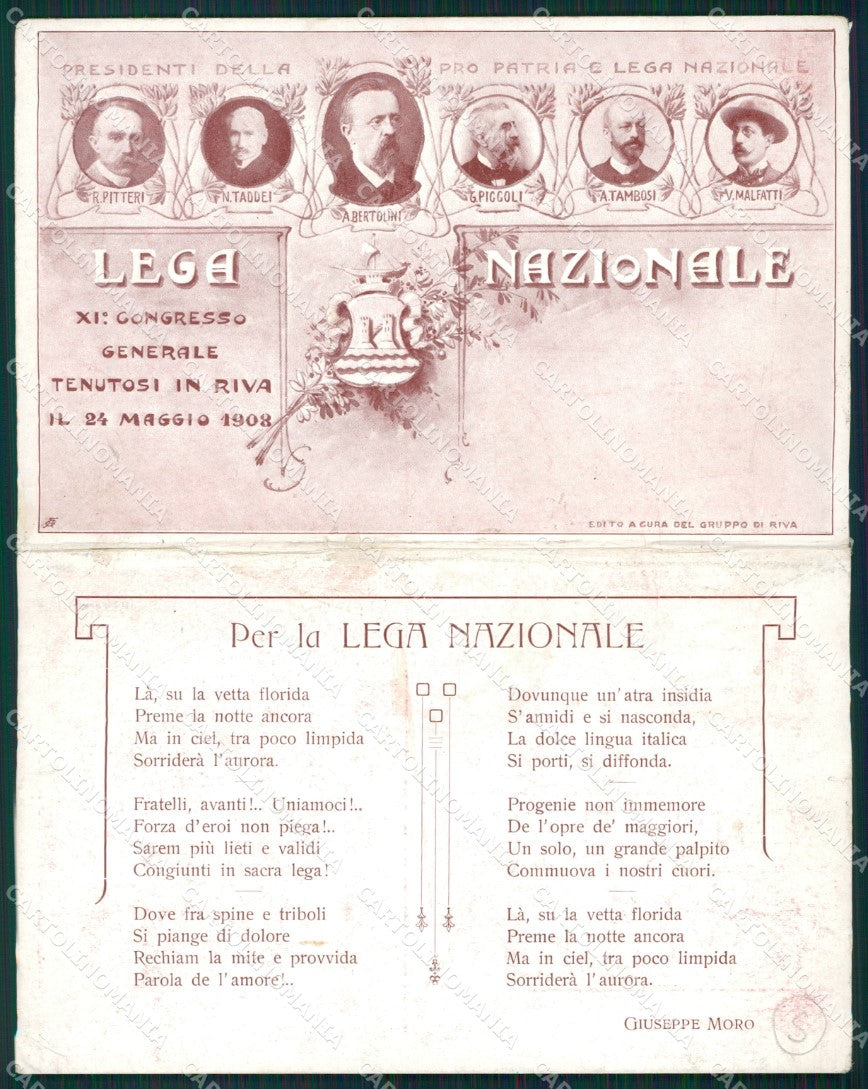 PRESIDENTI DELLA PRO PATRIA E LEGA NAZIONALE
R. PITTERI
N. TADDEI
A. BERTOLINI
G. PICCOLI
A. TAMBOSI
V. MALFATTI
LEGA NAZIONALE
XIº CONGRESSO
GENERALE
TENUTOSI IN RIVA
IL 24 MAGGIO 1908
EDITO A CURA DEL GRUPPO DI RIVA
Per la LEGA NAZIONALE
Là, su la vetta florida
Preme la notte ancora
Ma in ciel, tra poco limpida
Sorriderà l'aurora.
Fratelli, avanti!.. Uniamoci!..
Forza d'eroi non piega!..
Sarem più lieti e validi
Congiunti in sacra lega!
Dove fra spine e triboli
Si piange di dolore
Rechiam la mite e provvida
Parola de l'amore!..
Dovunque un'atra insidia
S'annidi e si nasconda,
La dolce lingua italica
Si porti, si diffonda.
Progenie non immemore
De l'opre de' maggiori,
Un solo, un grande palpito
Commuova i nostri cuori.
Là, su la vetta florida
Preme la notte ancora
Ma in ciel, tra poco limpida
Sorriderà l'aurora.
GIUSEPPE MORO
S
CARTOLINOMANIA